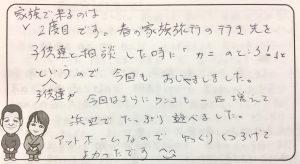 家族で来るのは
2度目です。春の家族旅行の行き先を
子供達と相談した時に「カニのところ!」と
いうので今回もおじゃましました。
子供達が今回はさらにワンコも一匹増えて
浜辺でたっぷり遊べました。
アットホームなのでゆっくりくつろげて
よかったです